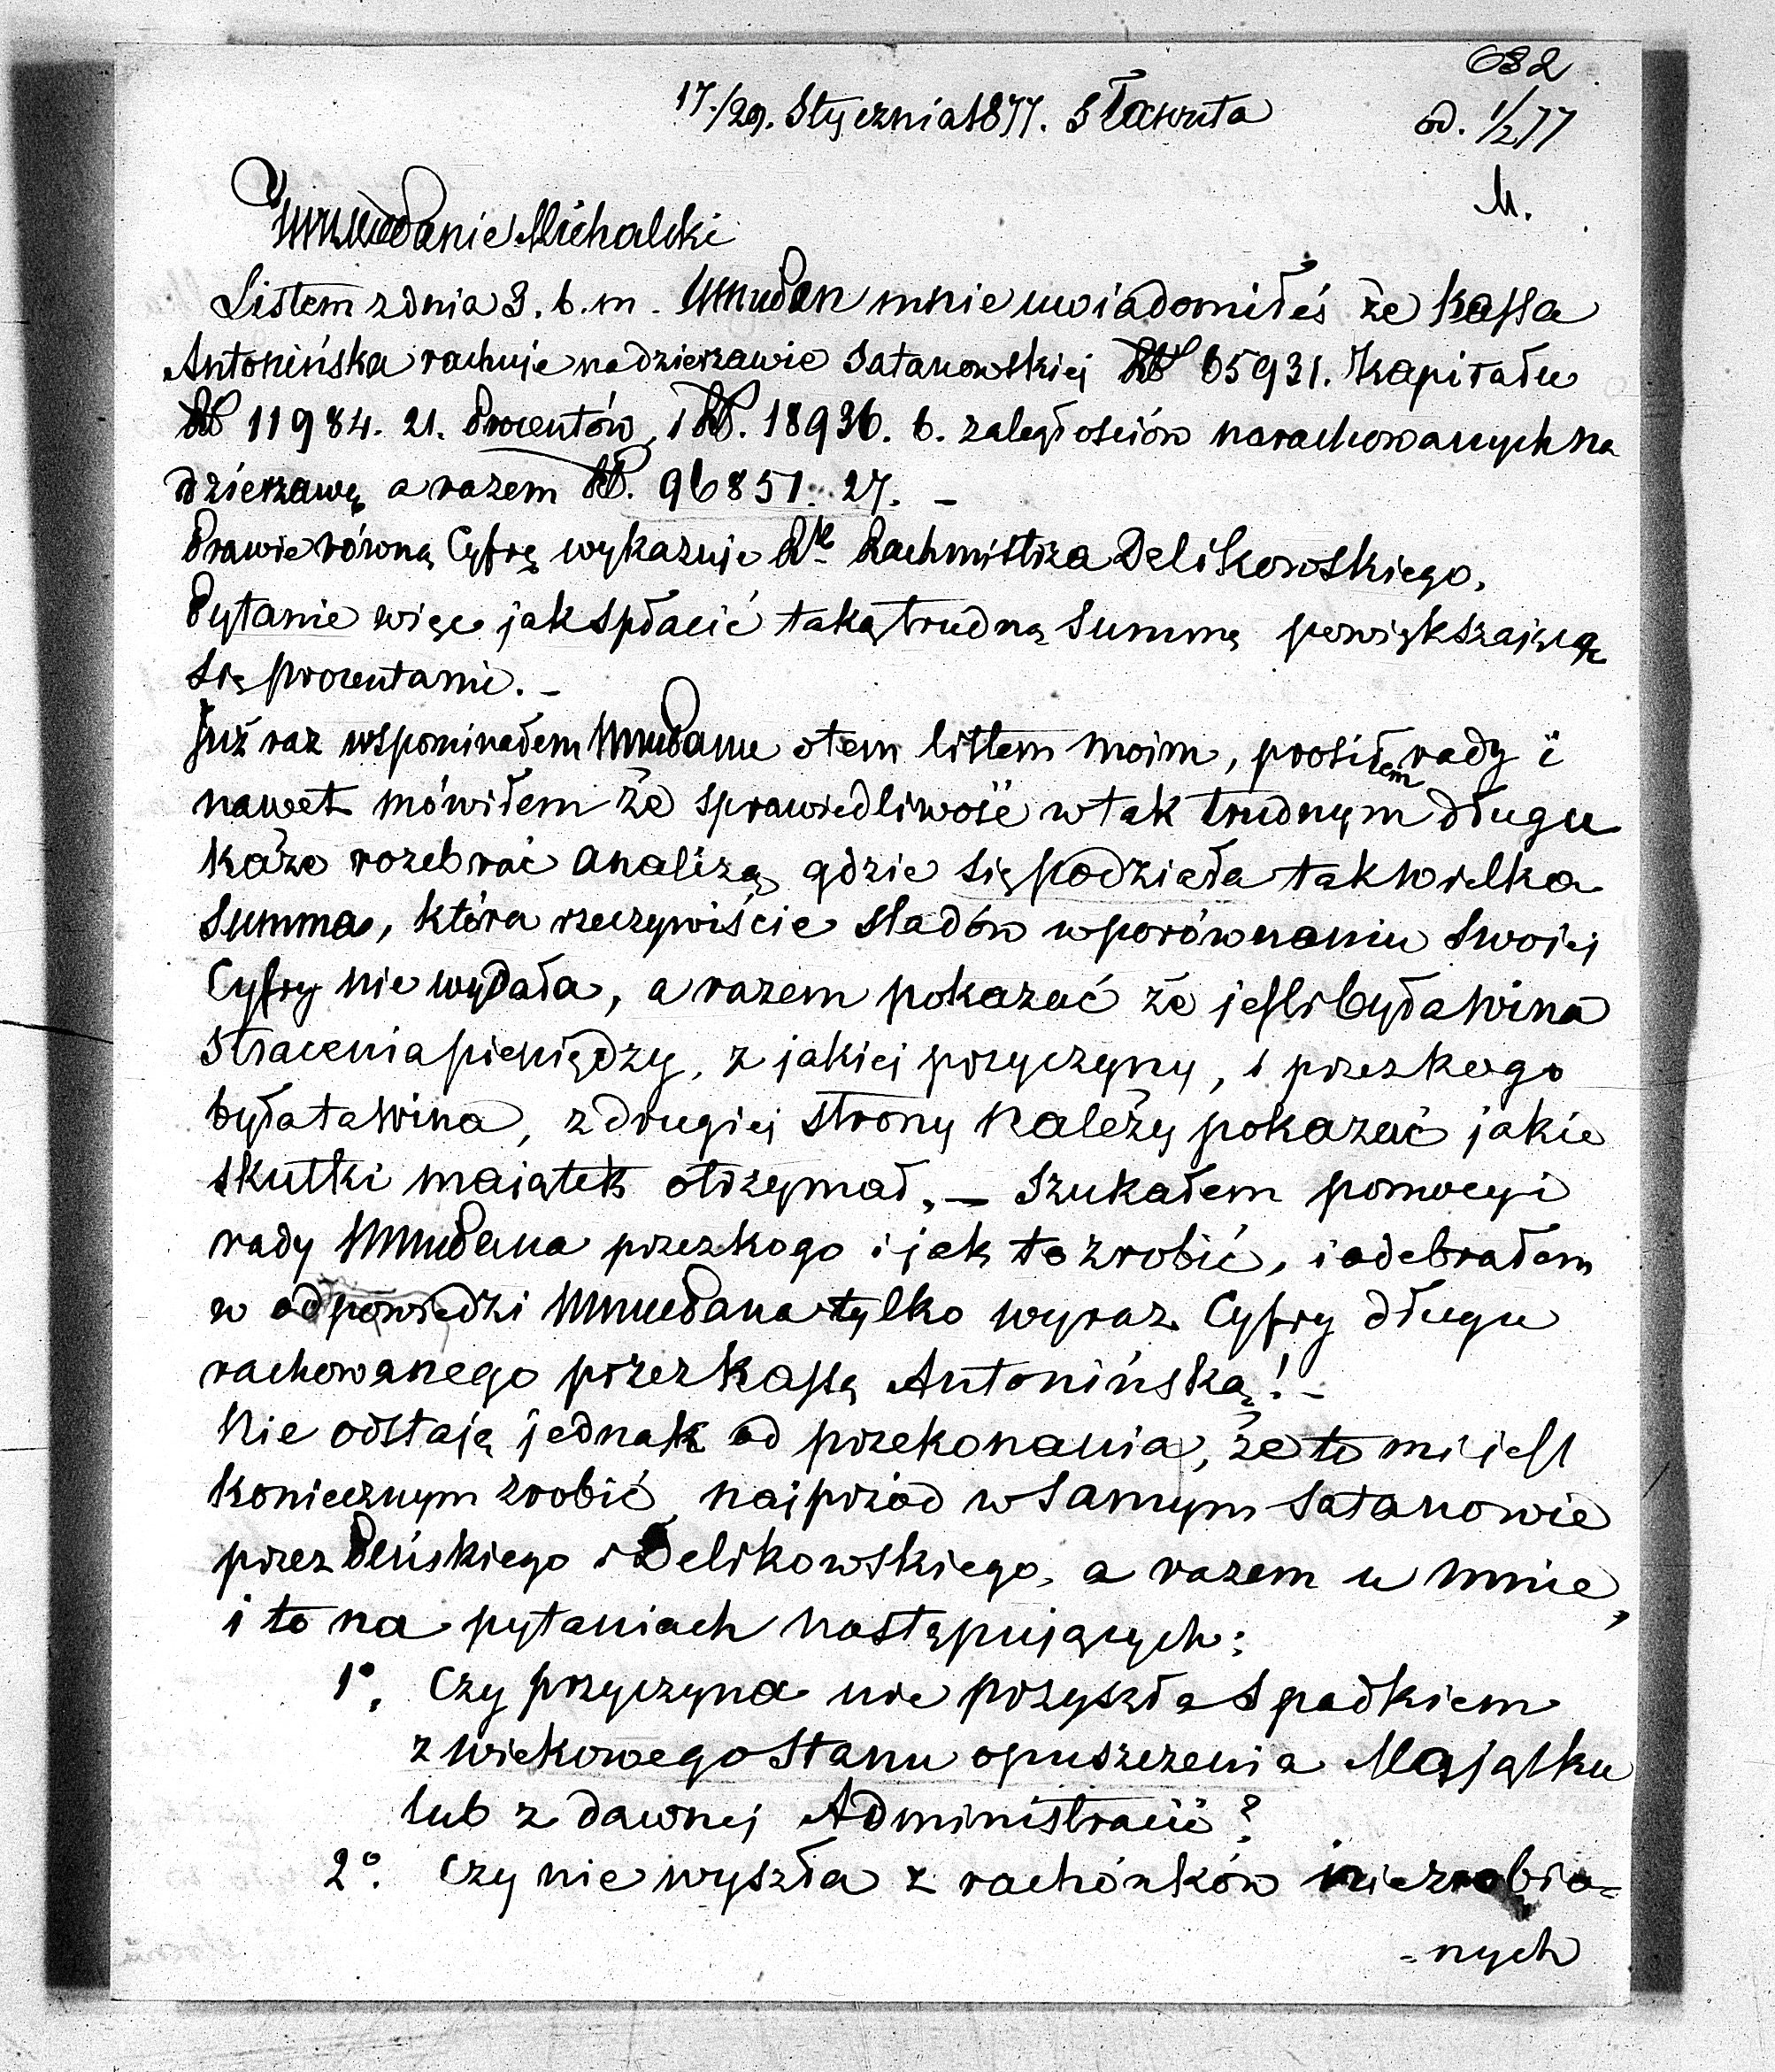 632
17./29. Stycznia 1877. Sławuta
od. 1/2 77
M.
WMWćPanie Michalski
Listem z dnia 3. b. m. WMWćPan mnie uwiadomiłeś że Kassa
Antonińska rachuje na dzierzawie Satanowskiej Rb 65931. Kapitału
Rb 11984. 21. Procentów, i Rb. 18936. 6. zaległościów narachowanych na
dzierzawę a razem Rb. 96851. 27. –
Prawie równą Cyfrę wykazuje Rk Rachmistrza Delikowskiego.
Pytanie więc jak spłacić taką trudną Summę powiększającą
się procentami. –
Już raz wspominałem WMWćPanu o tem listem moim, prosiłem rady i
nawet mówiłem że sprawiedliwość w tak trudnym długu
każe rozebrać analizą gdzie się podziała tak wielka
Summa, która rzeczywiście sladów w porównaniu swojej
Cyfry nie wydała, a razem pokazać że jeśli była wina
stracenia pieniędzy, z jakiej przyczyny, i przez kogo
była ta wina, z drugiej strony należy pokazać jakie
skutki maiątek otrzymał. – Szukałem pomocy i
rady WMWćPana przez kogo i jak to zrobić, i odebrałem
w odpowiedzi WMWćPana tylko wyraz Cyfry długu
rachowanego przez Kassę Antonińską! –
Nie odstaję jednak od przekonania, że to mi jest
koniecznym zrobić najprzód w samym Satanowie
przez Pleńskiego i Delikowskiego, a razem u mnie,
i to na pytaniach następujących:
1°. Czy przyczyna nie przyszła spadkiem
z wiekowego stanu opuszczenia Majątku
lub z dawnej Administracii?
2°. Czy nie wyszła z rachónków niezrobio=
=nych